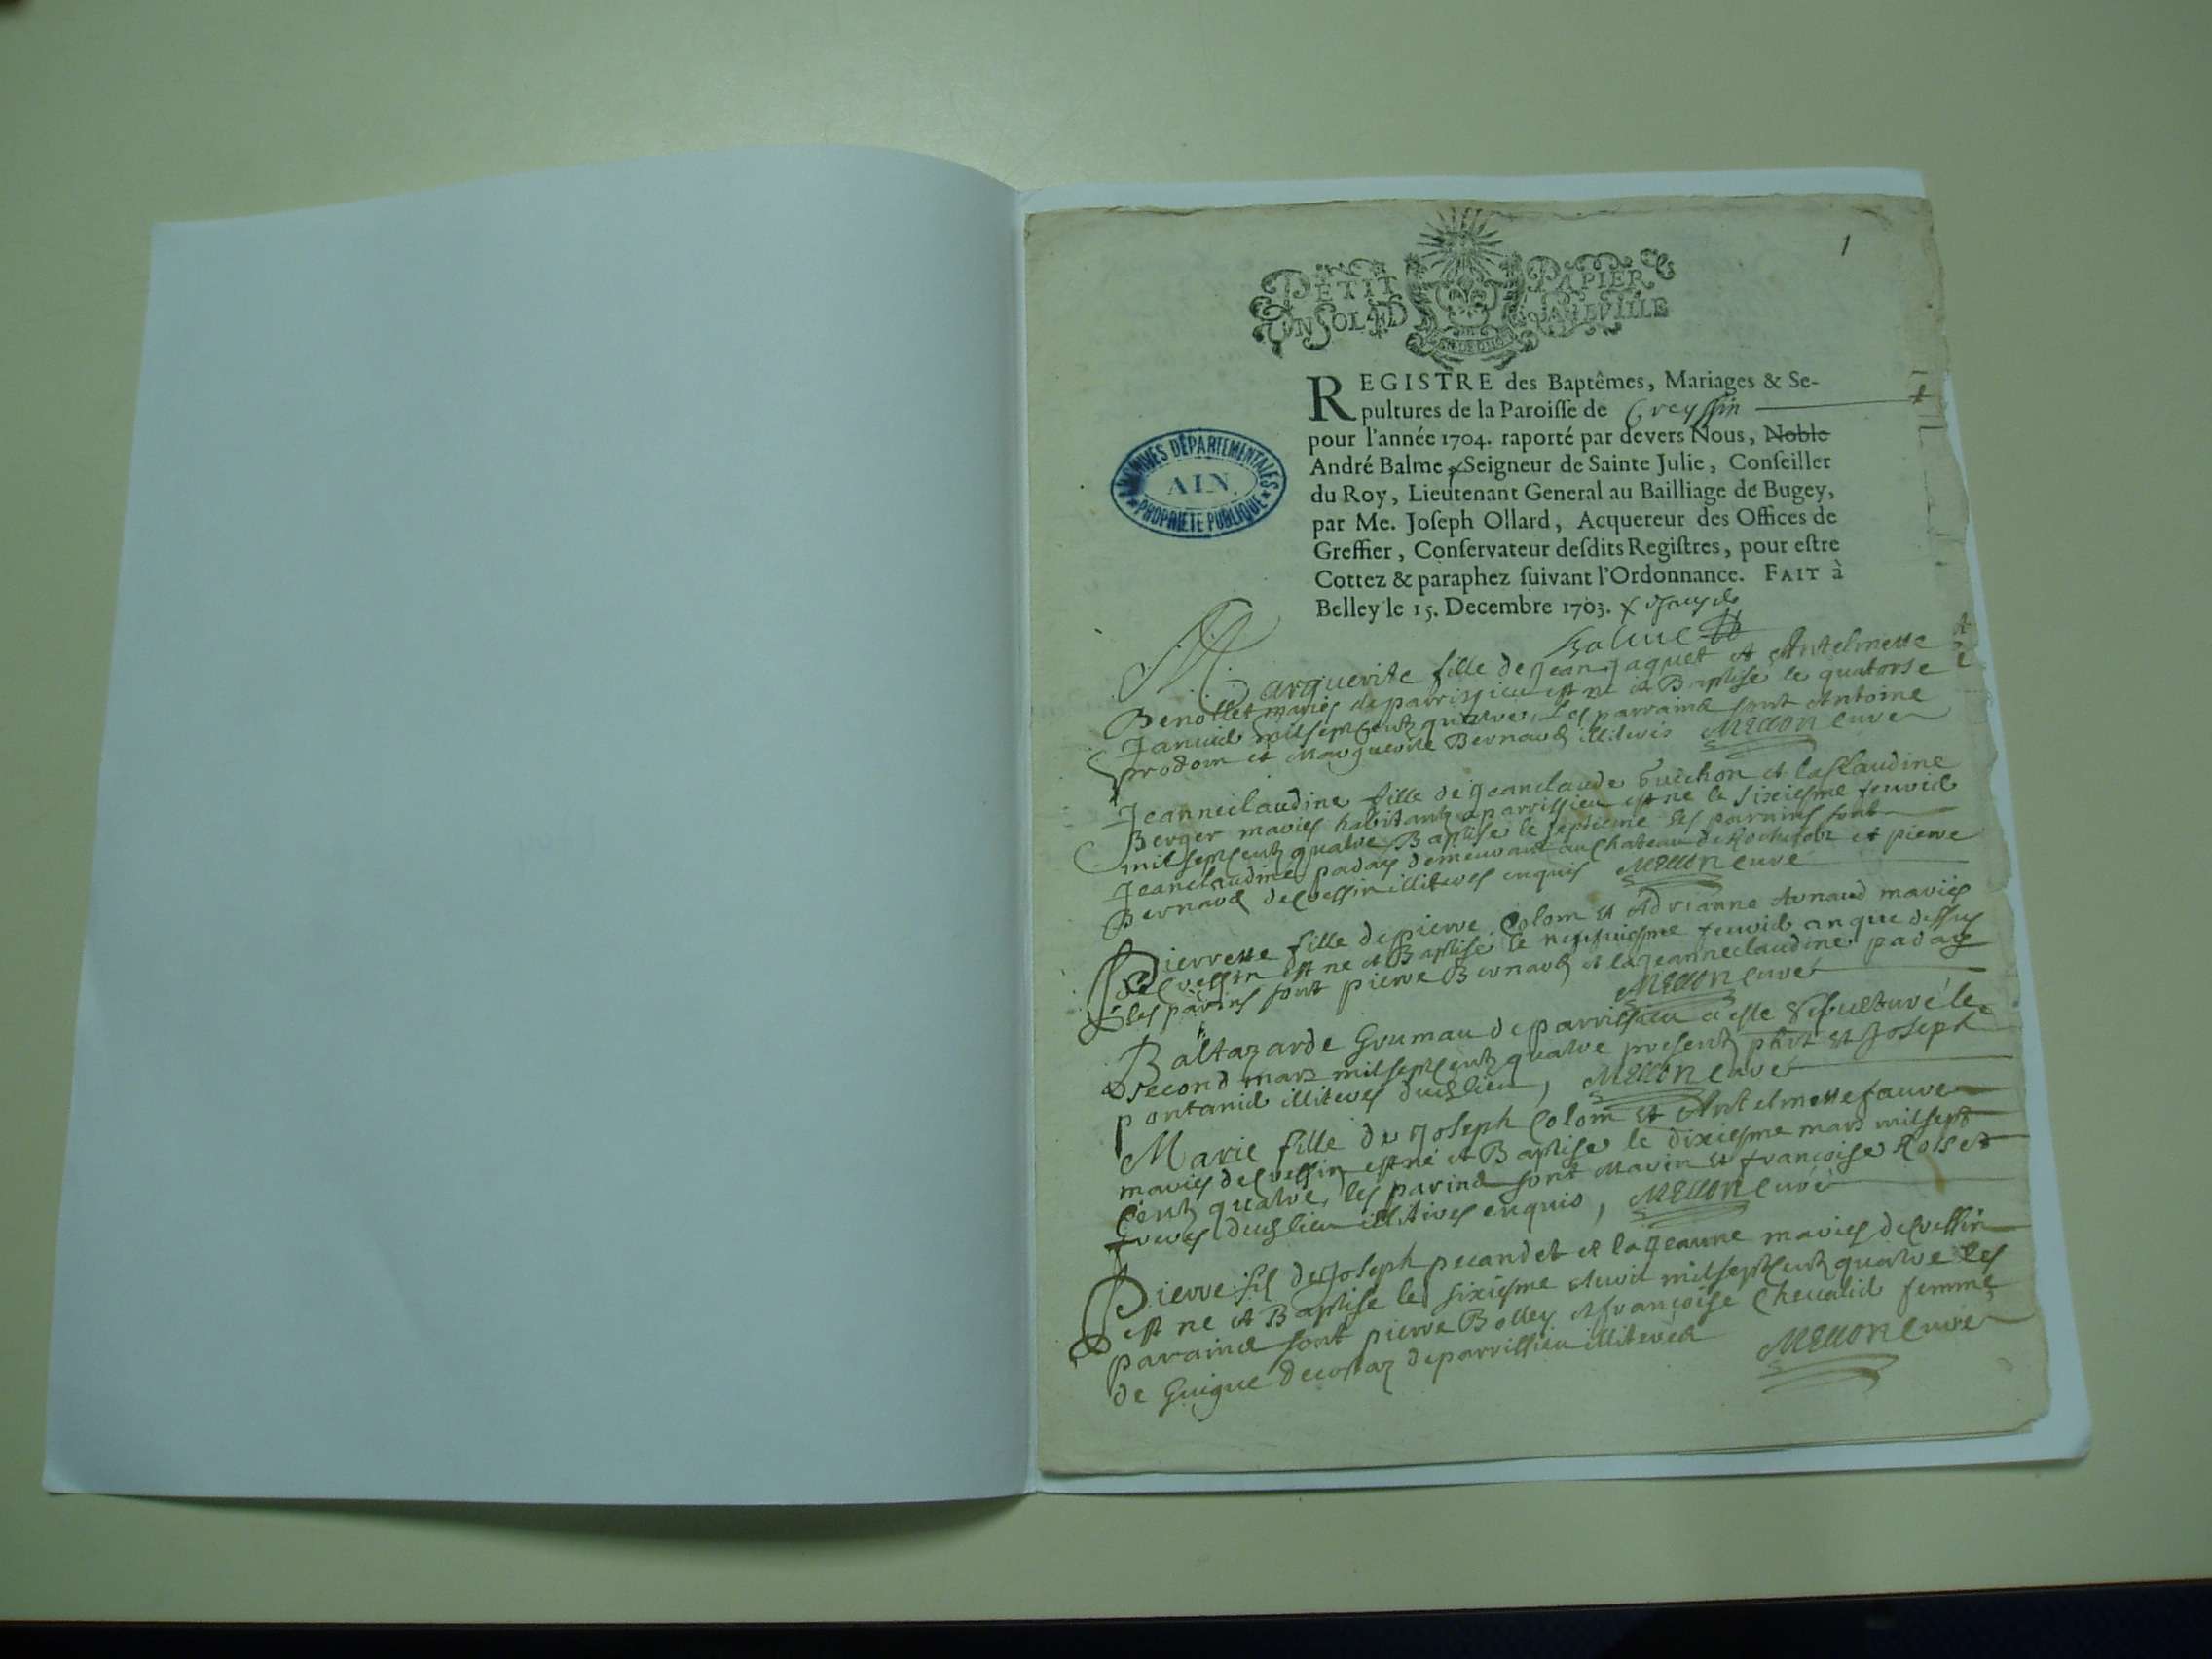 1
PETIT PAPIER
UN SOL 4D LA FEUILLE
REGISTRE des Baptêmes, Mariages & Se-
pultures de la Paroisse de Creyssin
pour l'année 1704. raporté par devers Nous, Noble
André Balme, Seigneur de Sainte Julie, Conseiller
du Roy, Lieutenant General au Bailliage de Bugey,
par Me. Joseph Ollard, Acquereur des Offices de
Greffier, Conservateur desdits Registres, pour estre
Cottez & paraphez suivant l'Ordonnance. FAIT à
Belley le 15. Decembre 1703.
Balme
ARCHIVES DÉPARTEMENTALES
AIN.
PROPRIÉTÉ PUBLIQUE
Marguerite fille de Jean Jaquet et Antelmette
Benollet mariés de parrissieu est ne et Baptise le quatorse
Janvié milseptcentz quatre, Les parraind sont Antoine
prodom et Marguerite Bernard illiteris Mellon Curé
Jeanneclaudine fille de Jeanclaude Guichon et laClaudine
Berger mariés habitantz a parrissieu est ne le sixiesme feuvié
milseptcentz quatre Baptise le septieme les parains sont
Jeanclaudine paday demeurant au Chateau de Rochefort et pierre
Bernard de Cressin illiteres enquis Mellon Curé
Pierrette fille de pierre Colom et Adrianne Arnaud mariés
de Cressin est ne et Baptise le neufviesme feuvié an que dessus
les parains sont pierre Bernard et la Jeanneclaudine paday
Mellon Curé
Baltazarde Grumau de parrissieu a esté Sepulturé le
second mars milseptcentz quatre presentz phot et Joseph
pontanié illiteres dud lieu, Mellon Curé
Marie fille de Joseph Colom et Antelmette faure
mariés de Cressin est né et Baptise le dixiesme mars milsept
Centz quatre, les parind sont Marin et françoise Roiset
freres dud lieu illitires enquis, Mellon Curé
Pierre fils de Joseph pecandet et la Jeanne mariés de Cressin
est ne et Baptise le sixiesme Avvil milseptcentz quatre les
paraind sont pierre Bolley et françoise Chevalié femme
de Guigue decostaz de parrissieu illiteres Mellon Curé